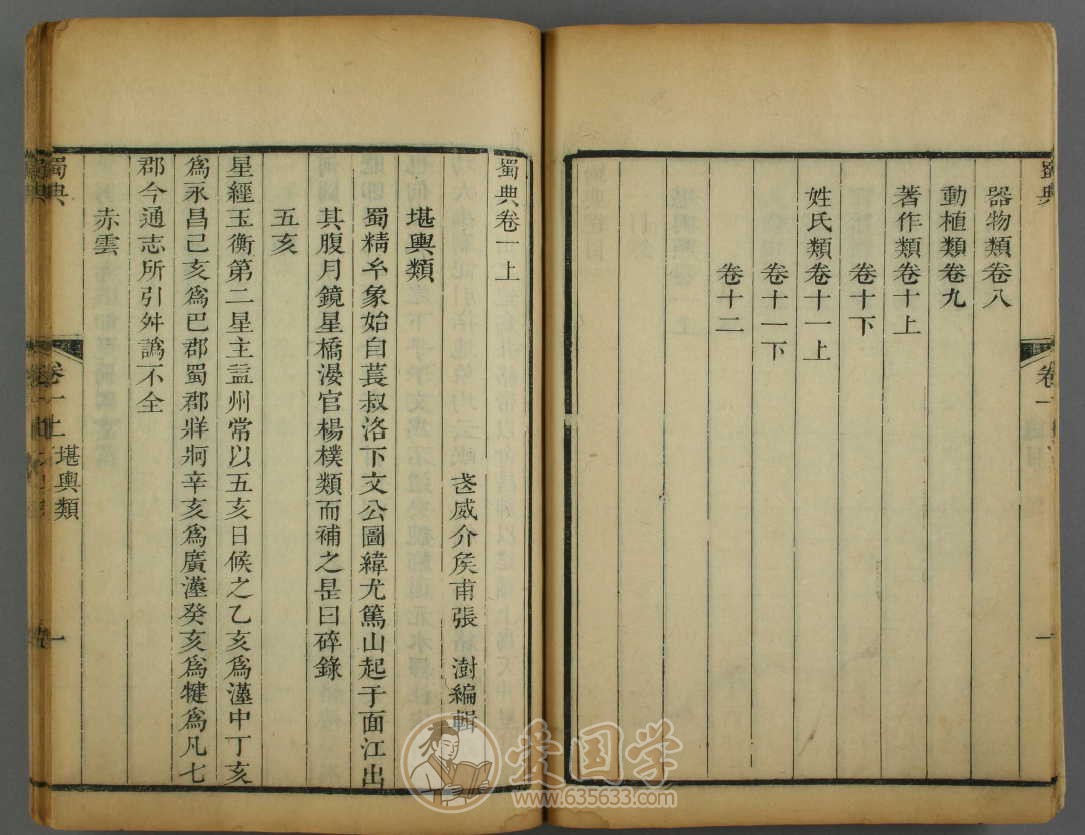 蜀典
器物類卷八
動植類卷九
著作類卷十上
卷十下
姓氏類卷十一上
卷十一下
卷十二
卷一
一
蜀典卷一上
武威介矦甫張澍編輯
堪輿類
蜀精糸象始自萇叔洛下文公圖緯尤篤山起于面江出
其腹月鏡星橋湯官楊樸類而補之是曰碎錄
五亥
星經玉衡第二星主益州常以五亥日候之乙亥爲漢中丁亥
爲永昌己亥爲巴郡蜀郡牂牁辛亥爲廣漢癸亥爲犍爲凡七
郡今通志所引舛譌不全
赤雲
蜀典
卷一上
堪輿類
一
爱国学
www.635633.com